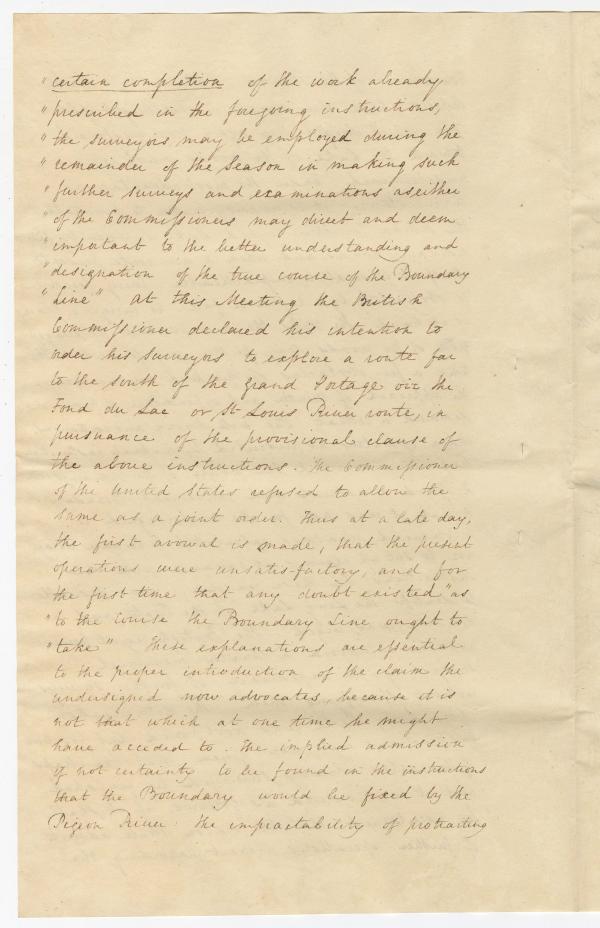 " certain completion of the work already
" prescribed in the foregoing instructions,
" the surveyors may be employed during the
" remainder of the Season in making such
" further surveys and examinations as either
" of the Commissioners may direct and deem
" important to the better understanding and
" designation of the true course of the Boundary
" Line" At this Meeting the British
Commissioner declared his intention to
order his surveyors to explore a route far
to the south of the Grand Portage via the
Fond du Lac or St Louis River route, in
pursuance of the provisional clause of
the above instructions. The Commissioner
of the United States refused to allow the
same as a joint order. Thus at a late day,
the first avowal is made, that the present
operations were unsatis-factory, and for
the first time that any doubt existed "as
" to the course the Boundary Line ought to
" take" These explanations are essential
to the proper introduction of the claim the
undersigned now advocates, because it is
not that which at one time he might
have acceded to. The implied admission
if not certainty to be found in the instructions
that the Boundary would be fixed by the
Pigeon River. The impractability of protracting